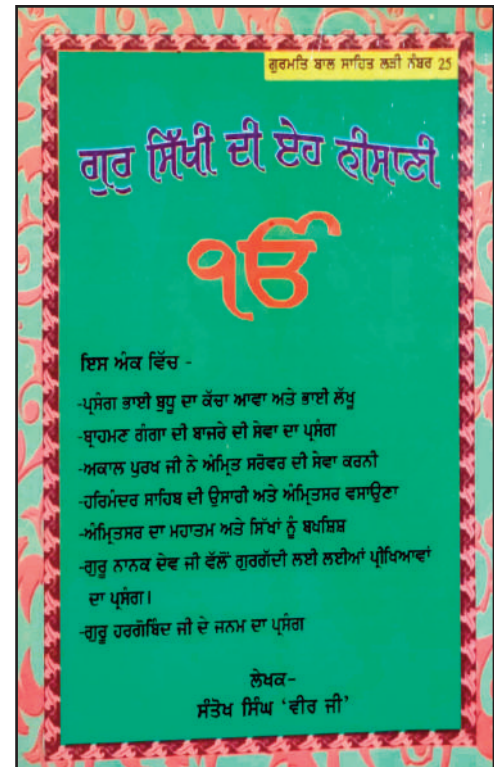 ਗੁਰਮਤਿ ਬਾਲ ਸਾਹਿਤ ਲੜੀ ਨੰਬਰ 25
ਗੁਰੁ ਸਿੱਖੀ ਦੀ ਏਹ ਨੀਸਾਣੀ
ੴ
ਇਸ ਅੰਕ ਵਿੱਚ -
-ਪ੍ਰਸੰਗ ਭਾਈ ਬੁਧੂ ਦਾ ਕੱਚਾ ਆਵਾ ਅਤੇ ਭਾਈ ਲੱਖੂ
-ਬ੍ਰਾਹਮਣ ਗੰਗਾ ਦੀ ਬਾਜਰੇ ਦੀ ਸੇਵਾ ਦਾ ਪ੍ਰਸੰਗ
-ਅਕਾਲ ਪੁਰਖ ਜੀ ਨੇ ਅੰਮ੍ਰਿਤ ਸਰੋਵਰ ਦੀ ਸੇਵਾ ਕਰਨੀ
-ਹਰਿਮੰਦਰ ਸਾਹਿਬ ਦੀ ਉਸਾਰੀ ਅਤੇ ਅੰਮ੍ਰਿਤਸਰ ਵਸਾਉਣਾ
-ਅੰਮ੍ਰਿਤਸਰ ਦਾ ਮਹਾਤਮ ਅਤੇ ਸਿੱਖਾਂ ਨੂੰ ਬਖਸ਼ਿਸ਼
-ਗੁਰੂ ਨਾਨਕ ਦੇਵ ਜੀ ਵੱਲੋਂ ਗੁਰਗੱਦੀ ਲਈ ਲਈਆਂ ਪ੍ਰੀਖਿਆਵਾਂ
ਦਾ ਪ੍ਰਸੰਗ।
-ਗੁਰੂ ਹਰਗੋਬਿੰਦ ਜੀ ਦੇ ਜਨਮ ਦਾ ਪ੍ਰਸੰਗ
ਲੇਖਕ-
ਸੰਤੋਖ ਸਿੰਘ 'ਵੀਰ ਜੀ'